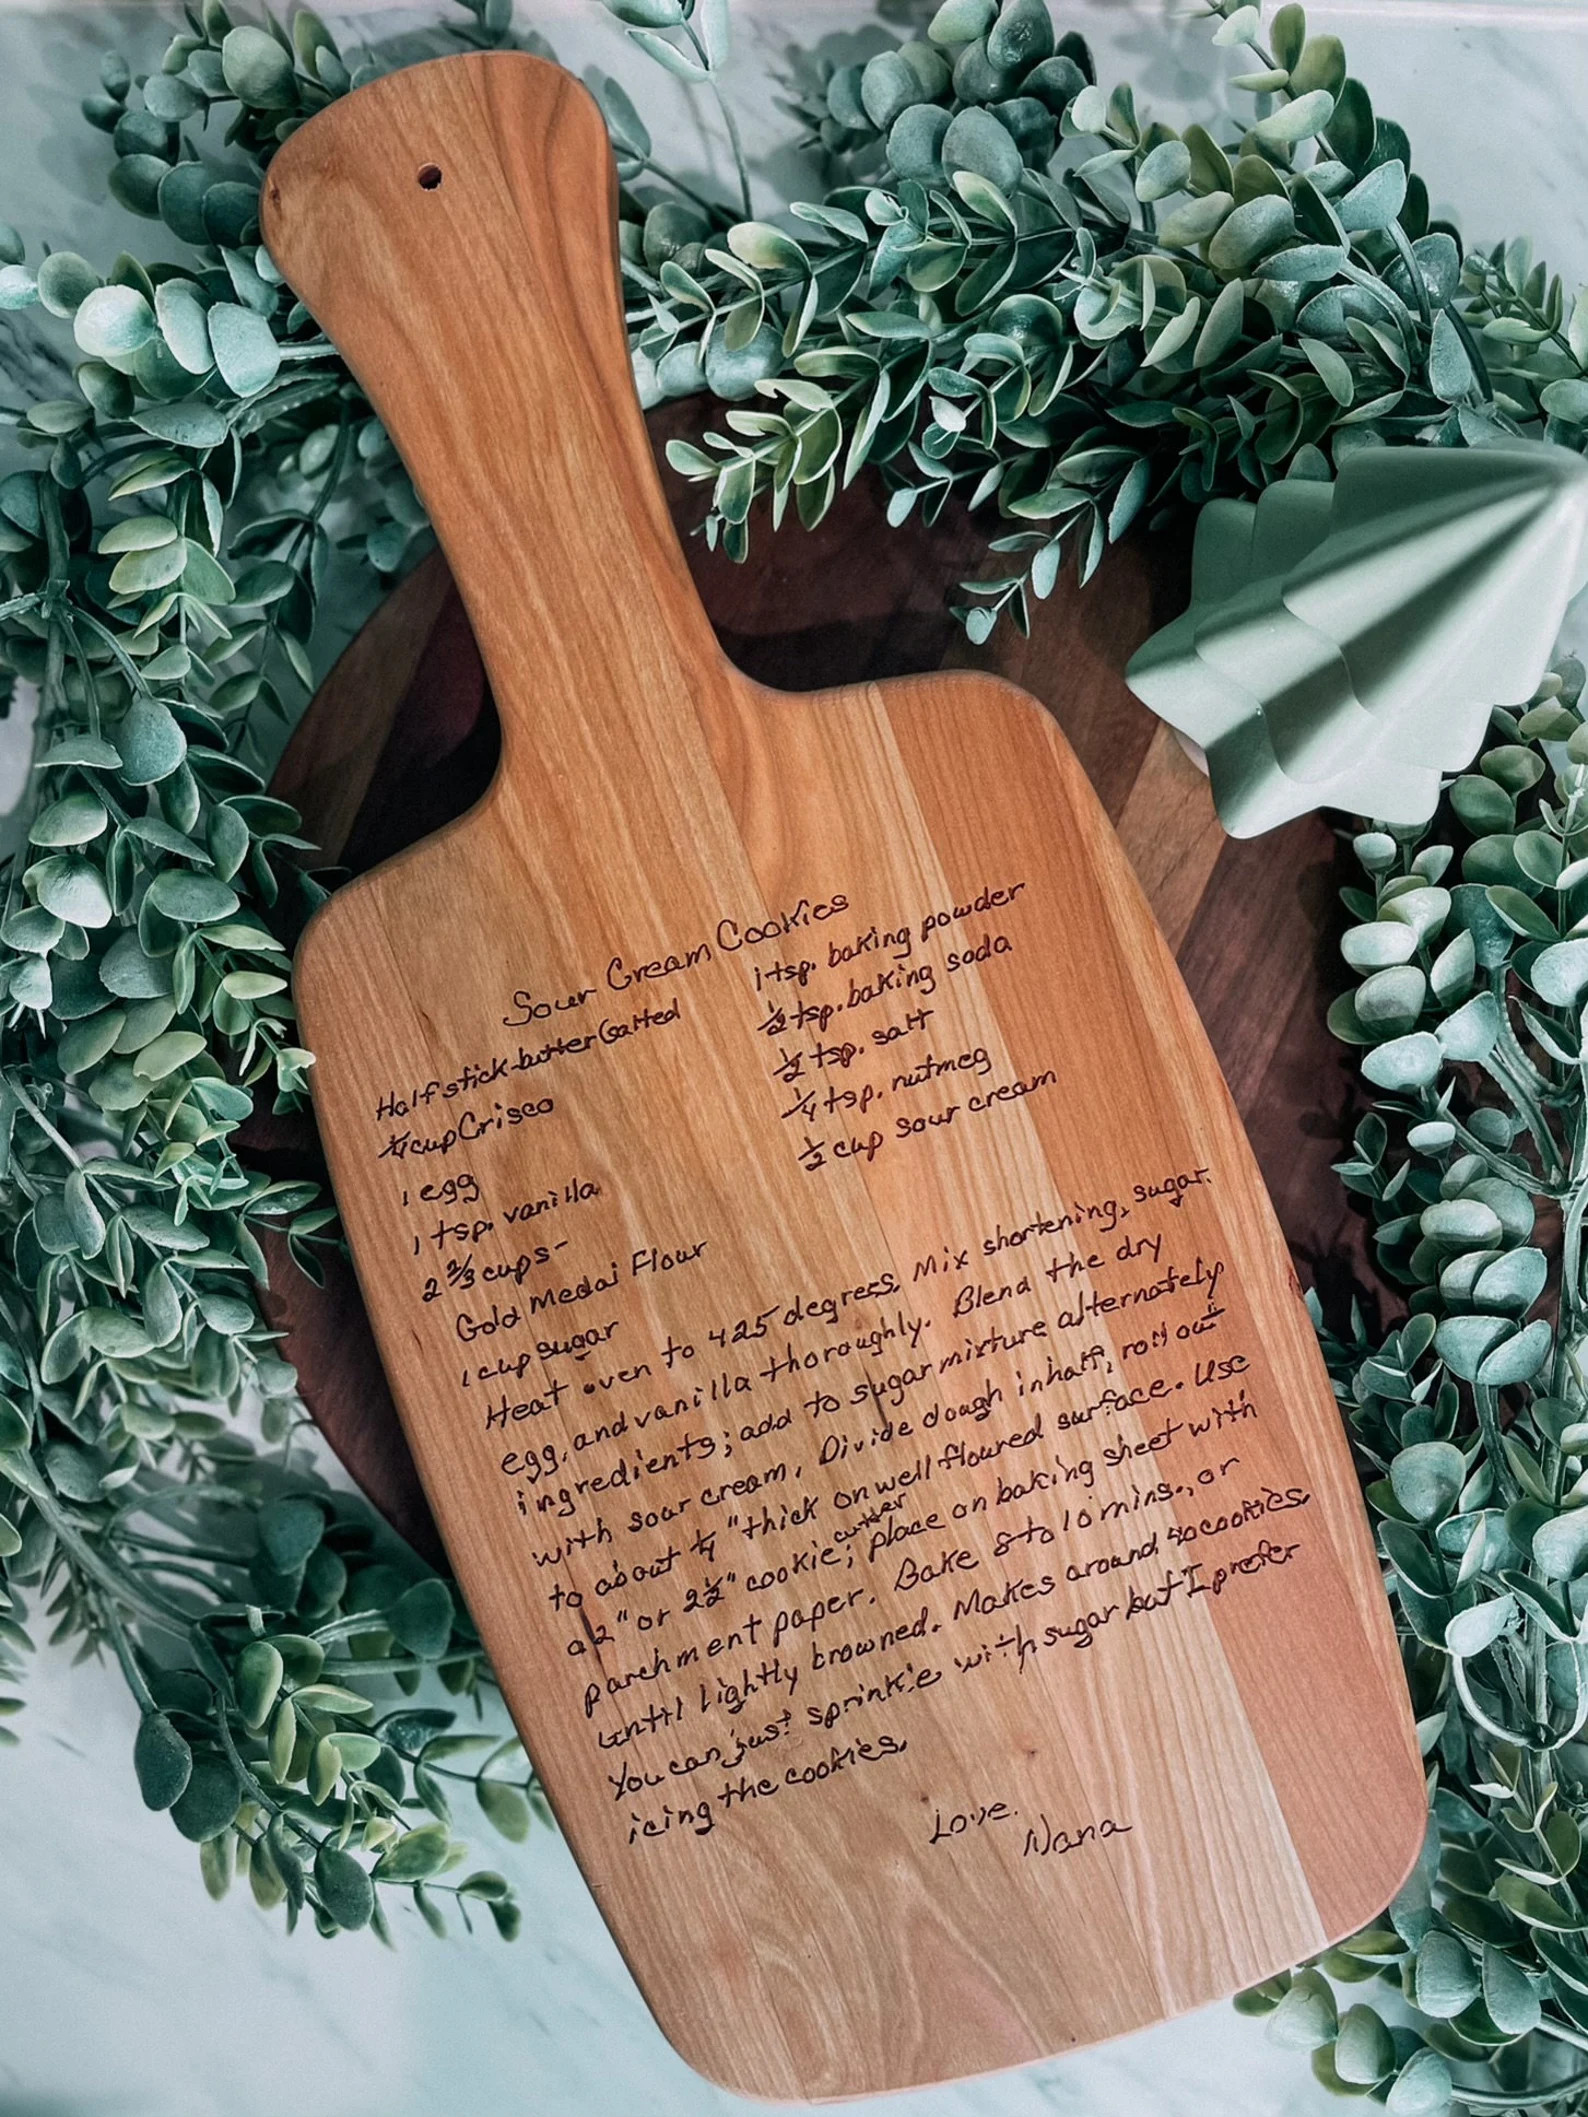 Sour Cream Cookies
Half stick-butter (salted
¼ cup Crisco
1 egg
1 tsp. vanilla
2 ⅔ cups-
Gold Medal Flour
1 cup sugar
1 tsp. baking powder
½ tsp. baking soda
½ tsp. salt
¼ tsp. nutmeg
½ cup sour cream
Heat oven to 425 degrees. Mix shortening, sugar,
egg, and vanilla thoroughly. Blend the dry
ingredients; add to sugar mixture alternately
with sour cream. Divide dough in half, roll out
to about ¼ "thick on well floured surface. Use
a 2" or 2½" cookie cutter; place on baking sheet with
parchment paper. Bake 8 to 10 mins., or
until lightly browned. Makes around 40 cookies.
You can just sprinkle with sugar but I prefer
icing the cookies.
Love,
Nana